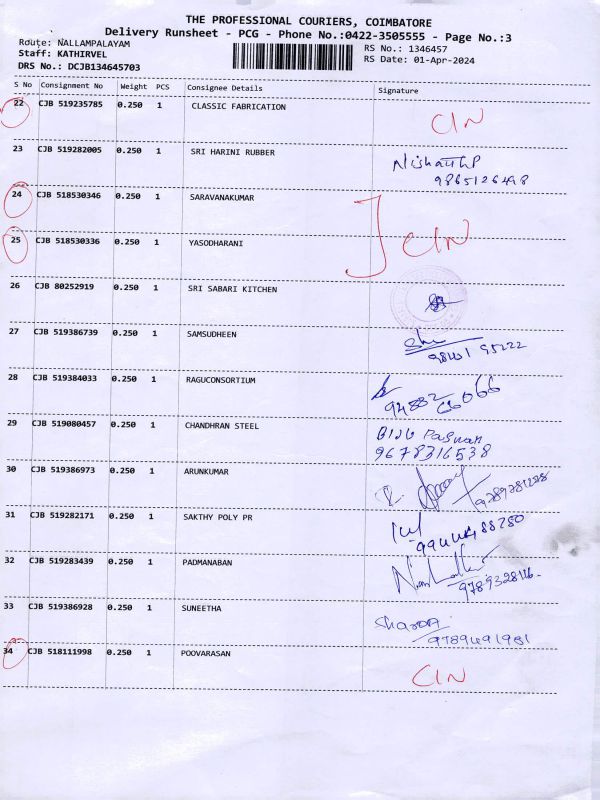 THE PROFESSIONAL COURIERS, COIMBATORE
Delivery Runsheet - PCG - Phone No.:0422-3505555 - Page No.:3
Route: NALLAMPALAYAM
RS No.: 1346457
Staff: KATHIRVEL
RS Date: 01-Apr-2024
DRS No.: DCJB134645703
S No Consignment No Weight PCS Consignee Details Signature
22 CJB 519235785 0.250 1 CLASSIC FABRICATION CIN
23 CJB 519282005 0.250 1 SRI HARINI RUBBER
9865126498
24 CJB 518530346 0.250 1 SARAVANAKUMAR
25 CJB 518530336 0.250 1 YASODHARANI CIN
26 CJB 80252919 0.250 1 SRI SABARI KITCHEN
27 CJB 519386739 0.250 1 SAMSUDHEEN
28 CJB 519384033 0.250 1 RAGUCONSORTIUM
29 CJB 519080457 0.250 1 CHANDHRAN STEEL
9678316538
30 CJB 519386973 0.250 1 ARUNKUMAR
31 CJB 519282171 0.250 1 SAKTHY POLY PR
32 CJB 519283439 0.250 1 PADMANABAN
33 CJB 519386928 0.250 1 SUNEETHA
9789491981
34 CJB 518111998 0.250 1 POOVARASAN CIN